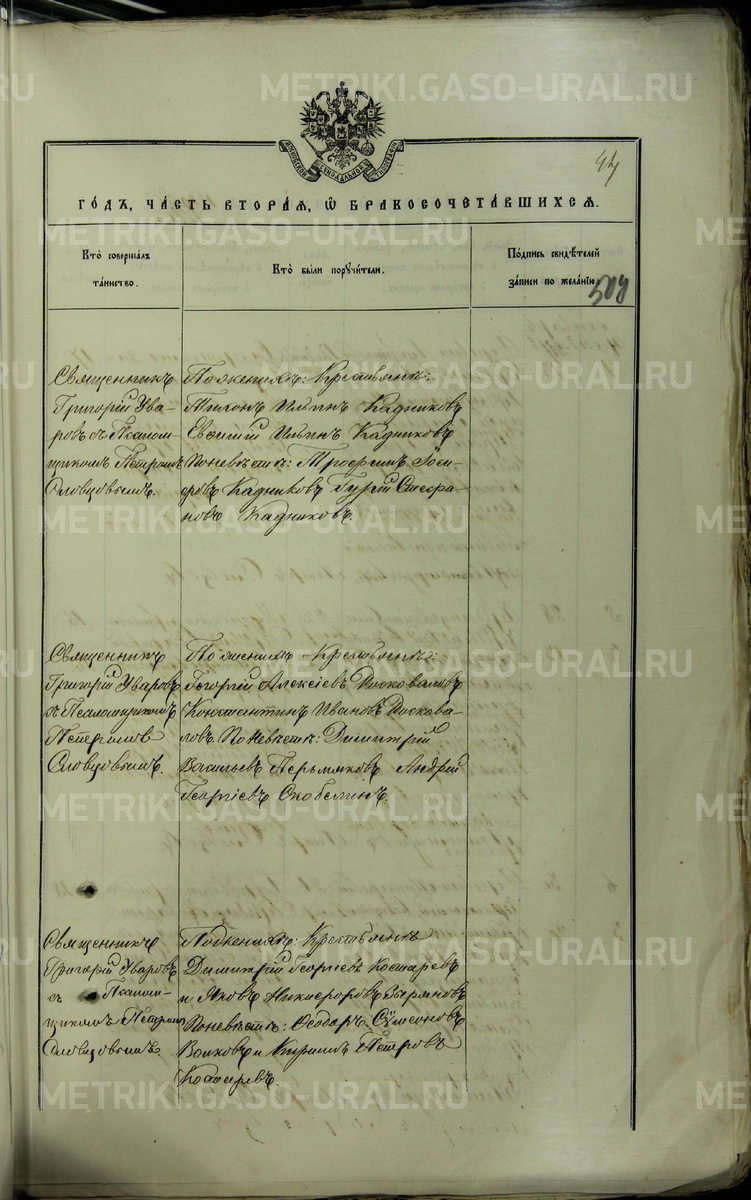 METRIKI.GASO-URAL.RU
47
Го́дъ, ча́сть втора́я, ѡ҆ бракосочета́вшихсѧ.
Кто̀ соверша́лъ
та́инство.
Кто̀ бы́ли порꙋчи́тели.
По́дпись свидѣ́телей
за́писи по жела́нїю.
509
Священникъ
Григорій Ува-
ровъ съ Псалом-
щикомъ Петромъ
Словцовымъ.
По женихѣ: Крестьяне:
Тихонъ Ильинъ Кадниковъ
Евсигній Ильинъ Кадниковъ
По невѣстѣ: Трофимъ
ровъ Кадниковъ Гурій Стефа-
новъ Кадниковъ.
Священникъ
Григорій Уваровъ
съ Псаломщикомъ
Петромъ
Словцовымъ.
По женихѣ Крестьяне:
Георгій Алексіевъ Посковаловъ
Константинъ Ивановъ Поскова-
ловъ По невѣстѣ: Димитрій
Васильевъ Пермяковъ Андрей
Георгіевъ Скобелинъ.
Священникъ
Григорій Уваровъ
съ Псалом-
щикомъ Петромъ
Словцовымъ
По женихѣ: Крестьяне
Димитрій Георгіевъ Костаревъ
и Яковъ Никифоровъ Зыряновъ
По невѣстѣ: Ѳеодоръ Сѵмеоновъ
Волковъ и Кириллъ Петровъ
Костаревъ